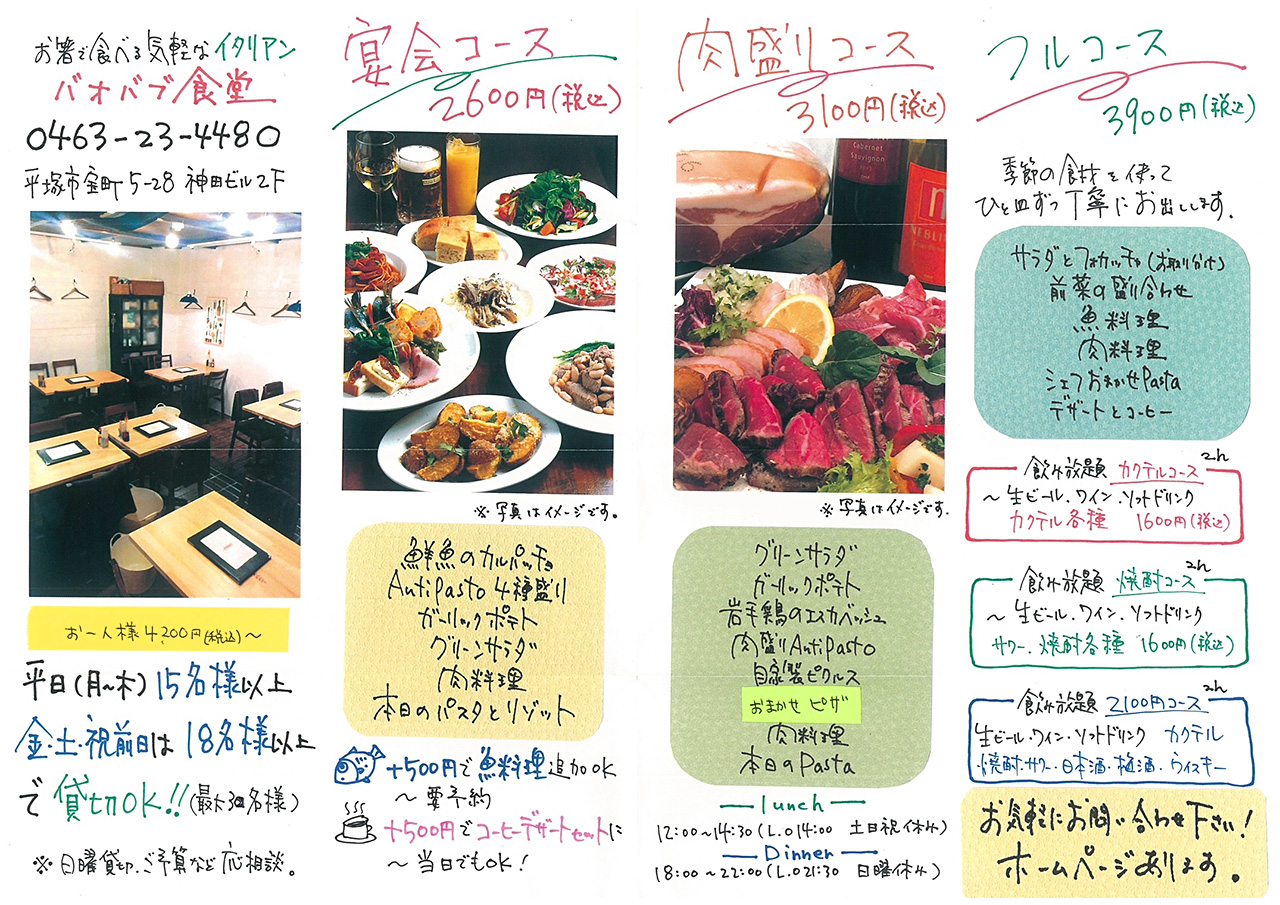 お箸で食べる気軽なイタリアン
バオバブ食堂
0463-23-4480
平塚市宝町5-28 神田ビル2F
お一人様4,200円(税込)～
平日(月～木)15名様以上
金・土・祝前日は18名様以上
で貸切OK!!(最大30名様)
※日曜貸切、ご予算など応相談。
宴会コース
2600円(税込)
※写真はイメージです。
鮮魚のカルパッチョ
AntiPasto 4種盛り
ガーリックポテト
グリーンサラダ
肉料理
本日のパスタとリゾット
+500円で魚料理追加OK
～要予約
+500円でコーヒーデザートセットに
～当日でもOK!
肉盛りコース
3100円(税込)
Cabernet
Sauvignon
※写真はイメージです.
グリーンサラダ
ガーリックポテト
岩手鶏のエスカベッシュ
肉盛りAntiPasto
自家製ピクルス
おまかせ ピザ
肉料理
本日のPasta
lunch
12:00～14:30(L.O14:00 土日祝休み)
Dinner
18:00～22:00(L.O21:30 日曜休み)
フルコース
3900円(税込)
季節の食材を使って
ひと皿ずつ丁寧にお出しします.
サラダとフォカッチャ(お取り分け)
前菜の盛り合わせ
魚料理
肉料理
シェフおまかせPasta
デザートとコーヒー
飲み放題 カクテルコース 2h
～生ビール.ワイン.ソフトドリンク
カクテル各種 1600円(税込)
飲み放題 焼酎コース 2h
～生ビール.ワイン.ソフトドリンク
サワー.焼酎各種 1600円(税込)
飲み放題 2100円コース 2h
生ビール.ワイン.ソフトドリンク カクテル
焼酎・サワー・日本酒・梅酒・ウイスキー
お気軽にお問い合わせ下さい!
ホームページあります。